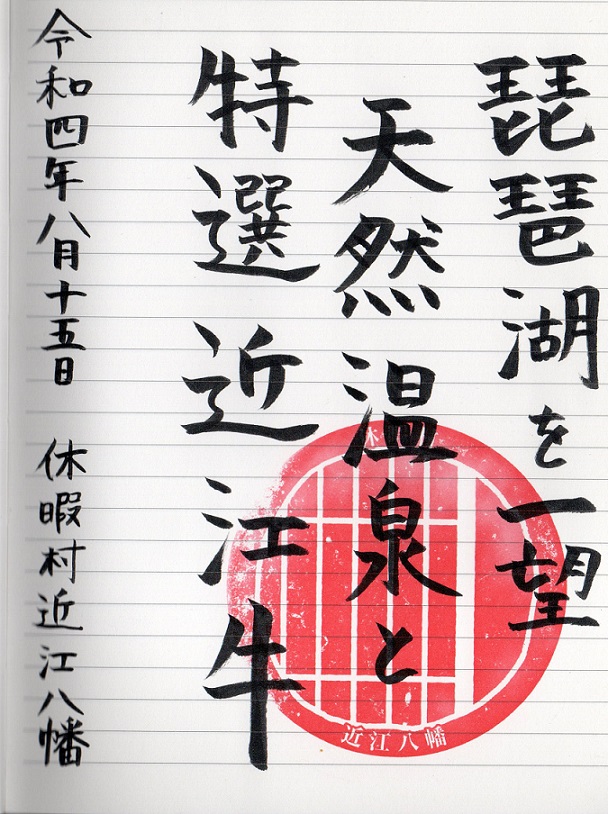 琵琶湖を一望
天然温泉と
特選近江牛
令和四年八月十五日 休暇村近江八幡
近江八幡